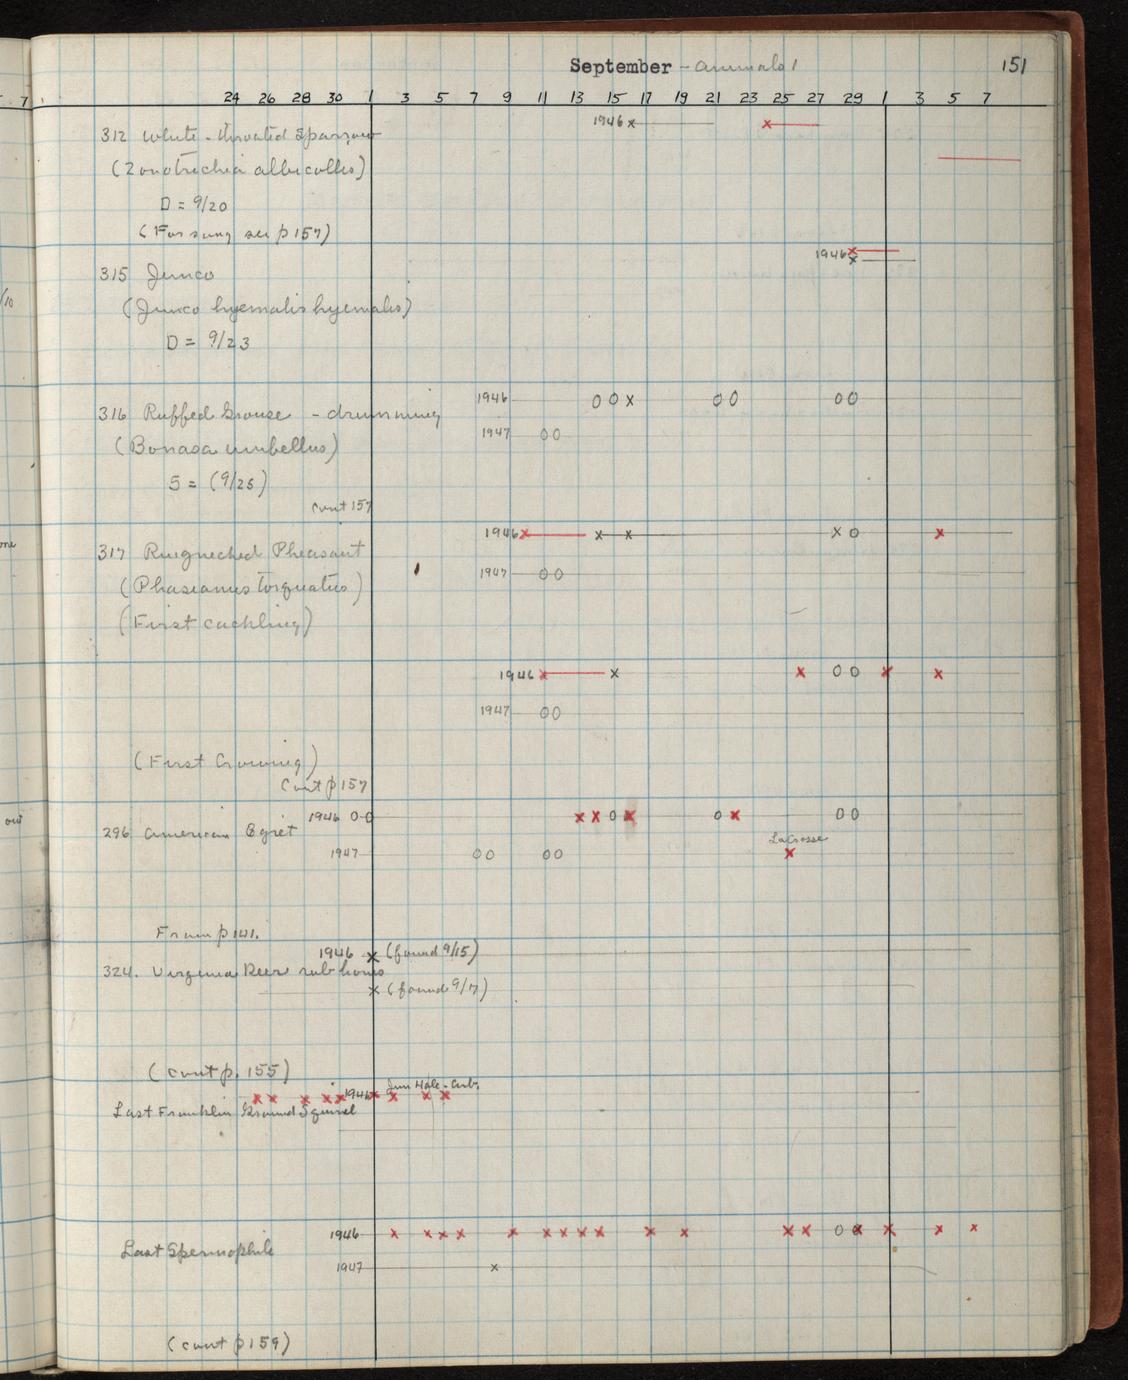 September - animals 1 151
7 24 26 28 30 1 3 5 7 9 11 13 15 17 19 21 23 25 27 29 1 3 5 7
1946 x x
312 White-throated Sparrow
(Zonotrichia albicollis)
D = 9/20
(For song see p 157)
1946 x
x
315 Junco
(Junco hyemalis hyemalis)
/10
D = 9/23
1946 0 0 x 0 0 0 0
316 Ruffed Grouse - drumming
1947 0 0
(Bonasa umbellus)
5 = (9/25)
cont 157
1946 x x x x 0 x
317 Ringnecked Pheasant
1947 0 0
(Phasianus torquatus)
(First cackling)
1946 x x x 0 0 x x
1947 0 0
(First Crowing)
Cont p 157
1946 0-0 x x 0 x 0 x 0 0
296 American Egret
LaCrosse
1947 0 0 0 0 x
From p 141.
1946 x (found 9/15)
324. Virginia Deer rub horns
x (found 9/17)
(cont p. 155)
Jim Hale - Arb.
x x x x x 1946 x x x x
Last Franklin Ground Squirrel
1946 x x x x x x x x x x x x x 0 x x x x
Last Spermophile
1947 x
(cont p 159)